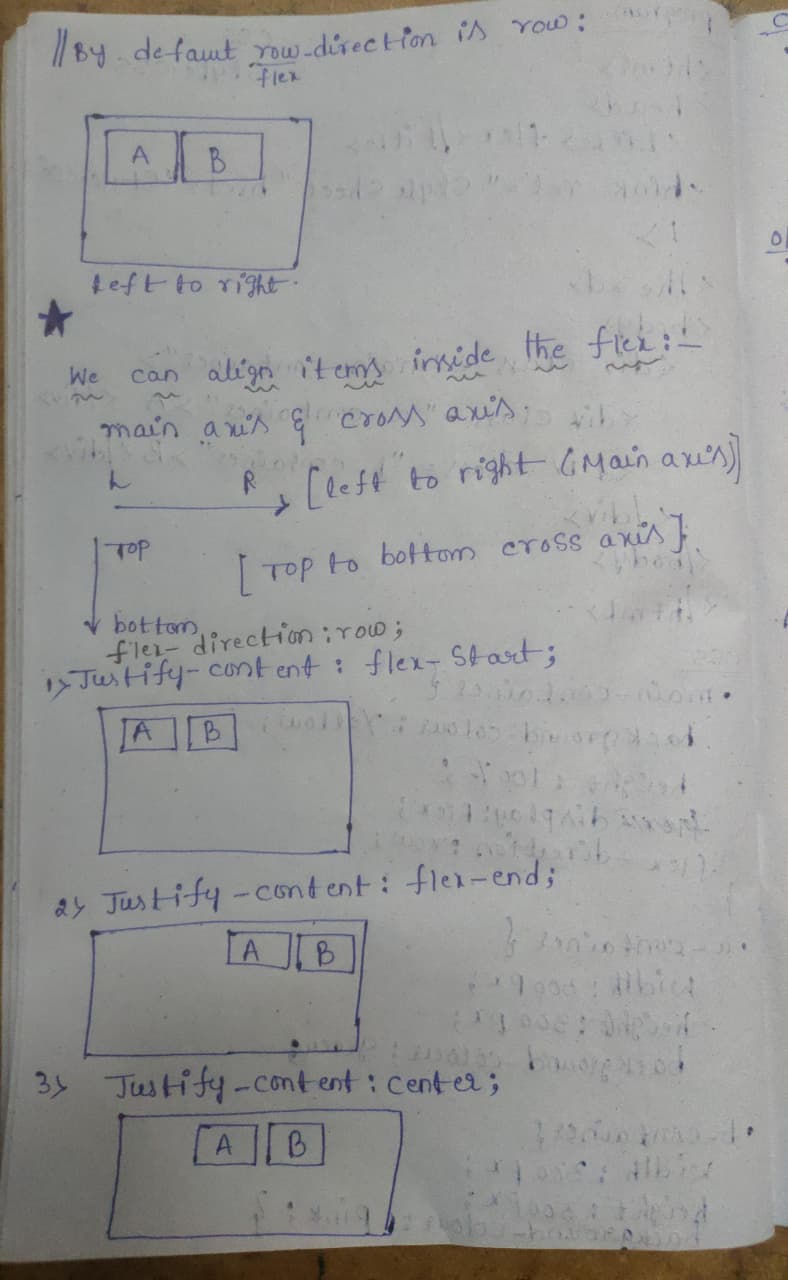 // By defaut row-direction is row:
flex
A B
Left to right.
We can align items inside the flex:-
main axis & cross axis.
L R [left to right (Main axis)]
TOP [TOP to bottom cross axis].
bottom
flex-direction:row;
1> Justify-content: flex-Start;
A B
2> Justify-content: flex-end;
A B
3> Justify-content: center;
A B